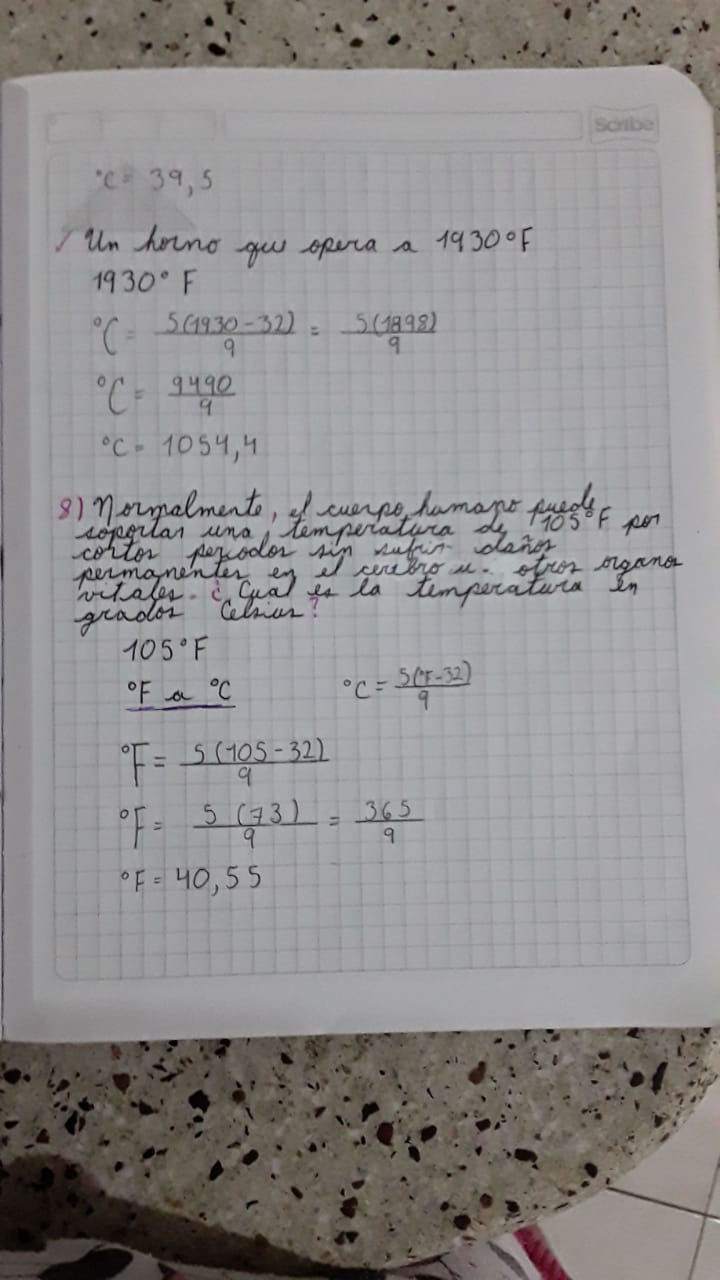 Scribe
°C = 39,5
/ Un horno que opera a 1930°F
1930° F
°C = 5(1930-32)/9 = 5(1898)/9
°C = 9490/9
°C = 1054,4
8) Normalmente, el cuerpo humano puede
soportar una temperatura de 105°F por
cortos periodos sin sufrir daños
permanentes en el cerebro u. otros organos
vitales. ¿Cual es la temperatura en
grados Celsius?
105°F
°F a °C °C = 5(°F-32)/9
°F = 5(105-32)/9
°F = 5(73)/9 = 365/9
°F = 40,55